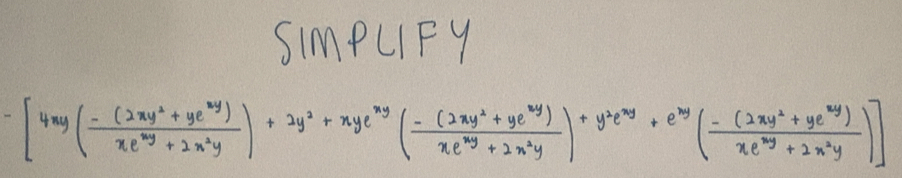 SIMPLIFY
- [ 4xy ( - (2xy² + ye^xy) / xe^xy + 2x²y ) + 2y² + xye^xy ( - (2xy² + ye^xy) / xe^xy + 2x²y ) + y²e^xy + e^xy ( - (2xy² + ye^xy) / xe^xy + 2x²y ) ]